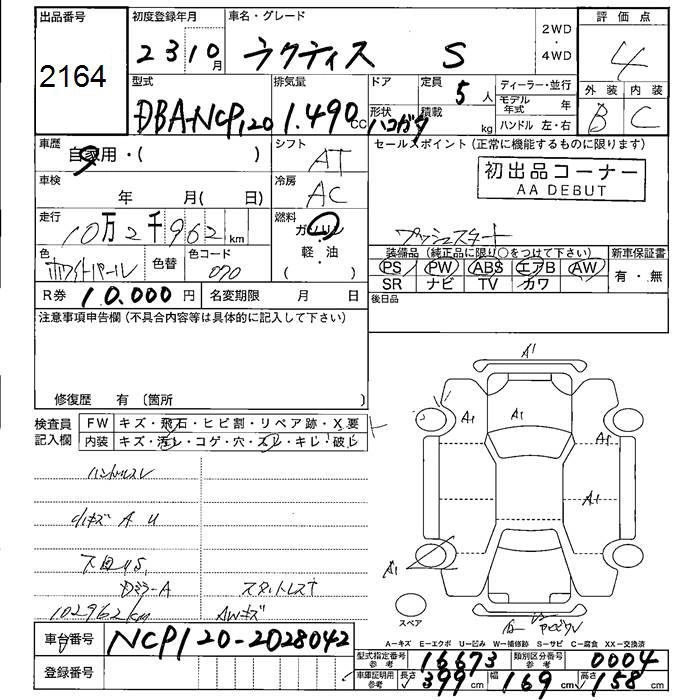 出品番号 初度登録年月 車名・グレード 2WD・4WD 評価点
2164 23 10月 ラクティス S 4
型式 排気量 ドア 定員 5人 ディーラー・並行 外装 内装
DBA-NCP120 1.490cc 形状 ハコガタ 積載 kg モデル年式 年 B C
ハンドル 左・右
車歴 自家用・( ) シフト AT セールスポイント(正常に機能するものに限ります)
車検 年 月( 日) 冷房 AC 初出品コーナー
AA DEBUT
走行 10万2千962km 燃料 ガソリン・軽・油 プッシュスタート
色 ホワイトパール 色替 色コード 070 装備品(純正品に限り○をつけて下さい) 新車保証書
PS PW ABS エアB AW 有・無
SR ナビ TV カワ
R券 10.000円 名変期限 月 日 後日品
注意事項申告欄(不具合内容等は具体的に記入して下さい)
修復歴 有(箇所 )
検査員記入欄 FW キズ・飛石・ヒビ割・リペア跡・X要
内装 キズ・汚レ・コゲ・穴・スレ・キレ・破レ
A1
A1 A1 A1
A1
A1
ハンドルスレ
小キズ A U
下回りS
Dミラー A スタットレス
102962km AWキズ
スペア
A―キズ E―エクボ U―凹み W―補修跡 S―サビ C―腐食 XX―交換済
車台番号 NCP120-2028042
型式指定番号 参考 16673 類別区分番号 参考 0004
登録番号 車庫証明用 参考 長さ 399cm 幅 169cm 高さ 158cm